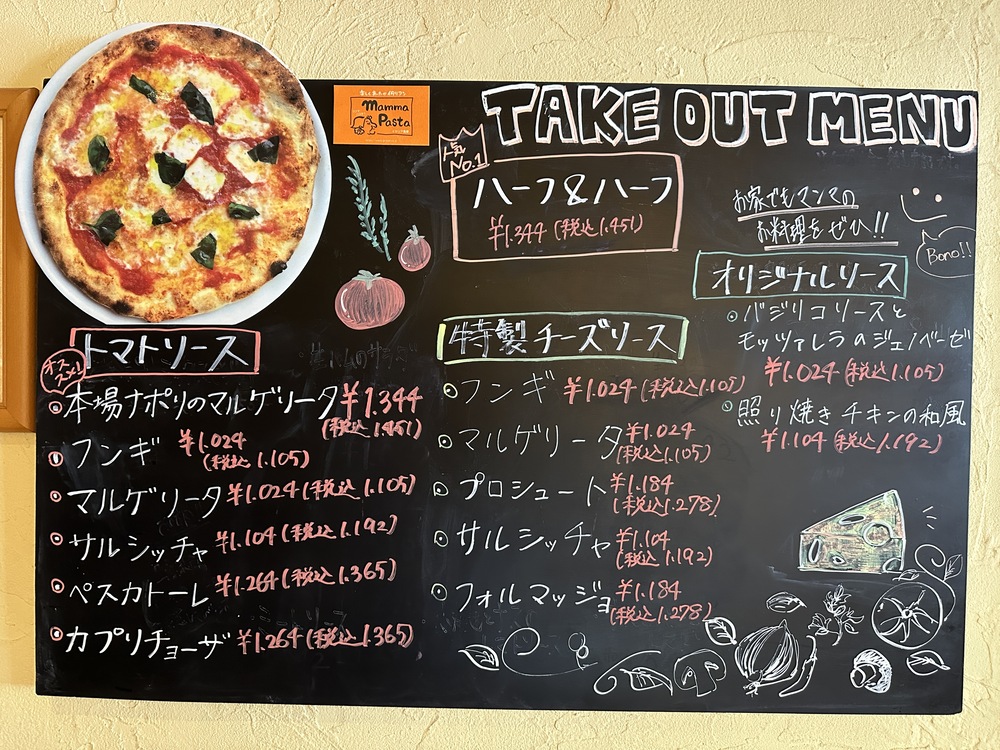 mamma
Pasta
TAKE OUT MENU
人気
No.1
ハーフ&ハーフ
¥1.344 (税込1.451)
お家でもマンマの
お料理をぜひ!!
Bono!!
トマトソース
オススメ!
本場ナポリのマルゲリータ ¥1.344
(税込1.451)
フンギ ¥1.024
(税込1.105)
マルゲリータ ¥1.024 (税込1.105)
サルシッチャ ¥1.104 (税込1.192)
ペスカトーレ ¥1.264 (税込1.365)
カプリチョーザ ¥1.264 (税込1.365)
特製チーズソース
フンギ ¥1.024 (税込1.105)
マルゲリータ ¥1.024
(税込1.105)
プロシュート ¥1.184
(税込1.278)
サルシッチャ ¥1.104
(税込1.192)
フォルマッジョ ¥1.184
(税込1.278)
オリジナルソース
バジリコソースと
モッツァレラのジェノベーゼ
¥1.024 (税込1.105)
照り焼きチキンの和風
¥1.104 (税込1.192)